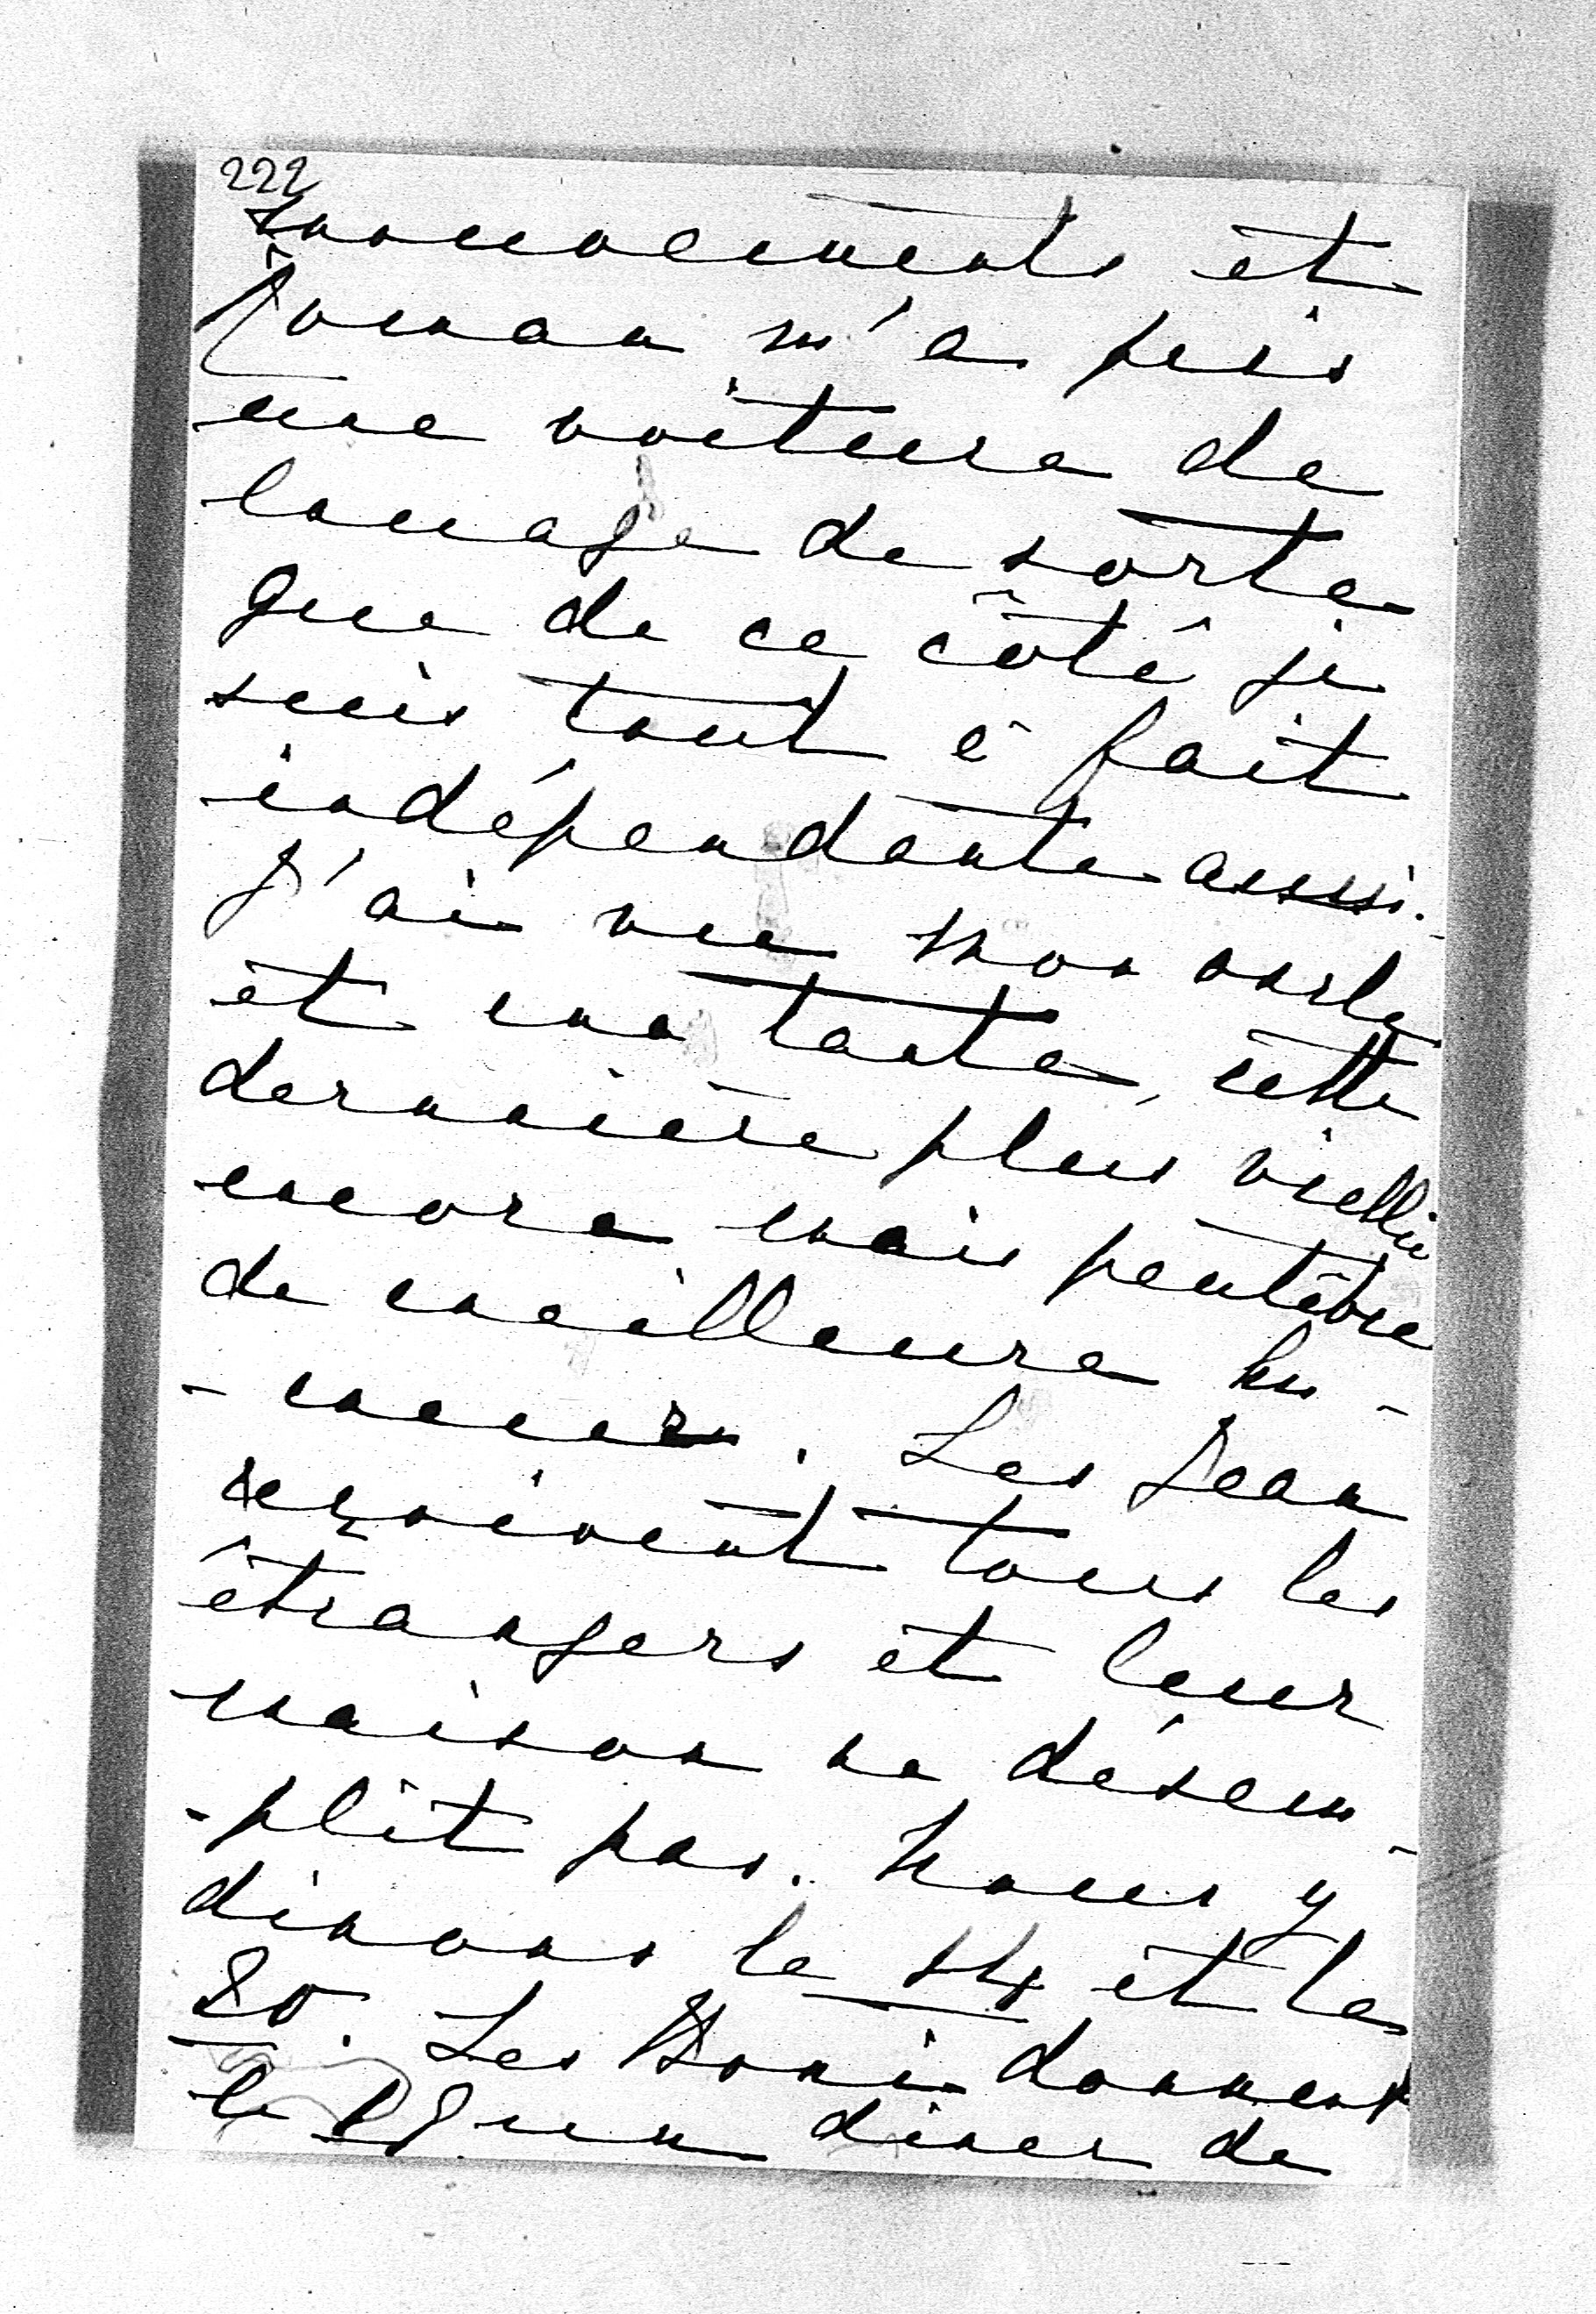 222
mouvements et
Roman m'a pris
une voiture de
louage de sorte
que de ce côté je
suis tout à fait
indépendante aussi.
J'ai vu mon oncle
et ma tante, cette
dernière plus vieillie
encore mais peutêtre
de meilleure hu-
-meur. Les Jean
reçoivent tous les
étrangers et leur
maison ne désem-
-plit pas. Nous y
dinons le 14 et le
20. Les donnent
le 18 un diner de